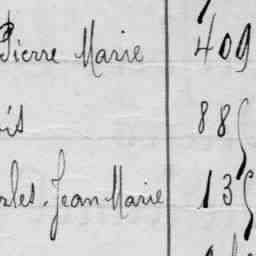 Pierre Marie 409
is 88
rles. Jean Marie 13